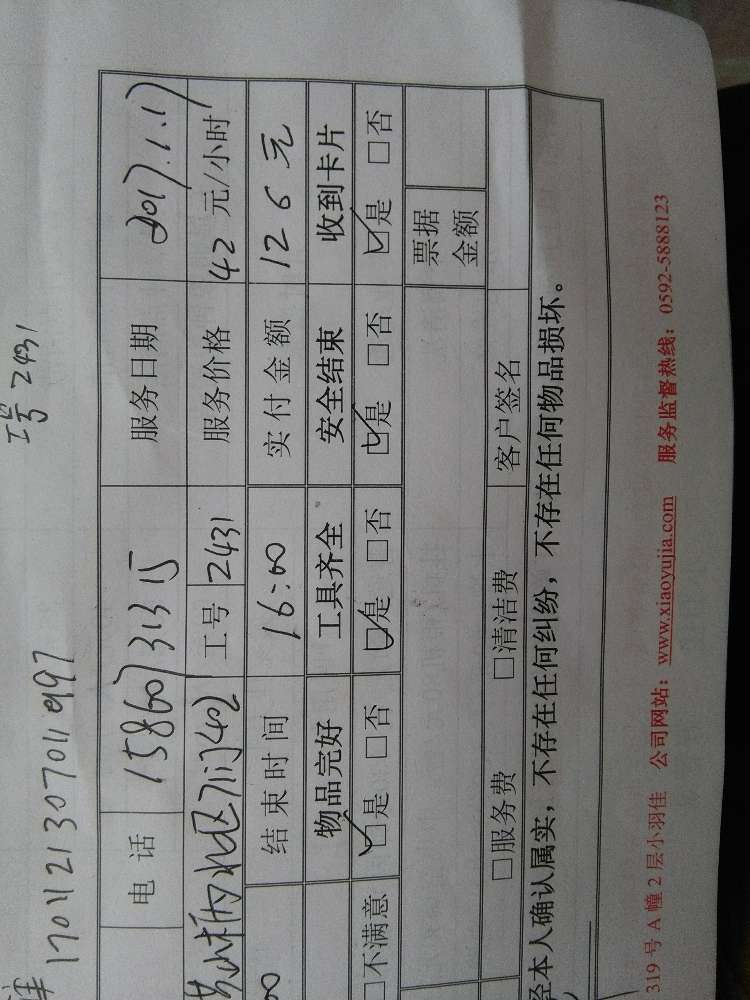 工号 2431
1701121307011997
电话 15860731315 服务日期 2017.1.17
北区7门402 工号 2431 服务价格 42 元/小时
00 结束时间 16:00 实付金额 126元
物品完好 工具齐全 安全结束 收到卡片
□不满意 ☑是 □否 ☑是 □否 ☑是 □否 ☑是 □否
票据金额
□服务费 □清洁费 客户签名
经本人确认属实，不存在任何纠纷，不存在任何物品损坏。
319 号 A 幢 2 层小羽佳 公司网站：www.xiaoyujia.com 服务监督热线：0592-5888123